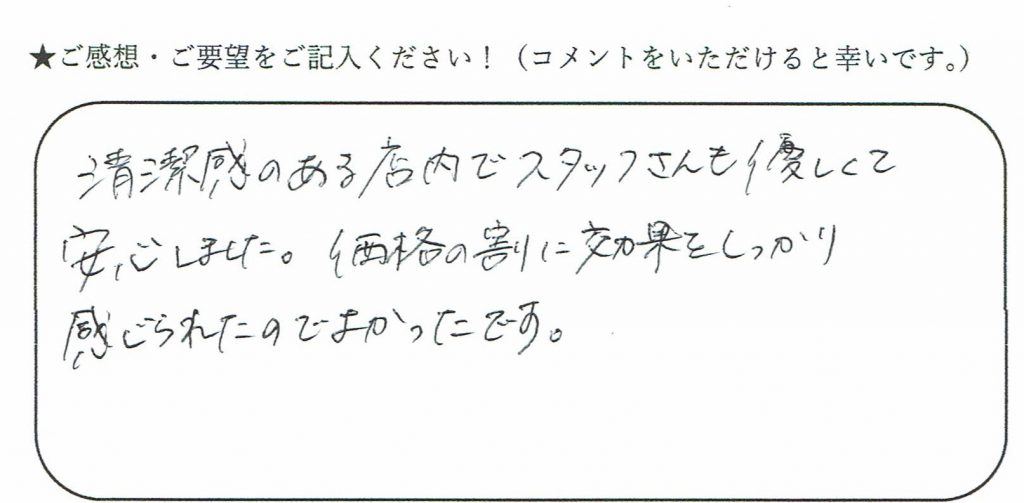 ★ご感想・ご要望をご記入ください！（コメントをいただけると幸いです。）
清潔感のある店内でスタッフさんも優しくて
安心しました。価格の割に効果をしっかり
感じられたのでよかったです。